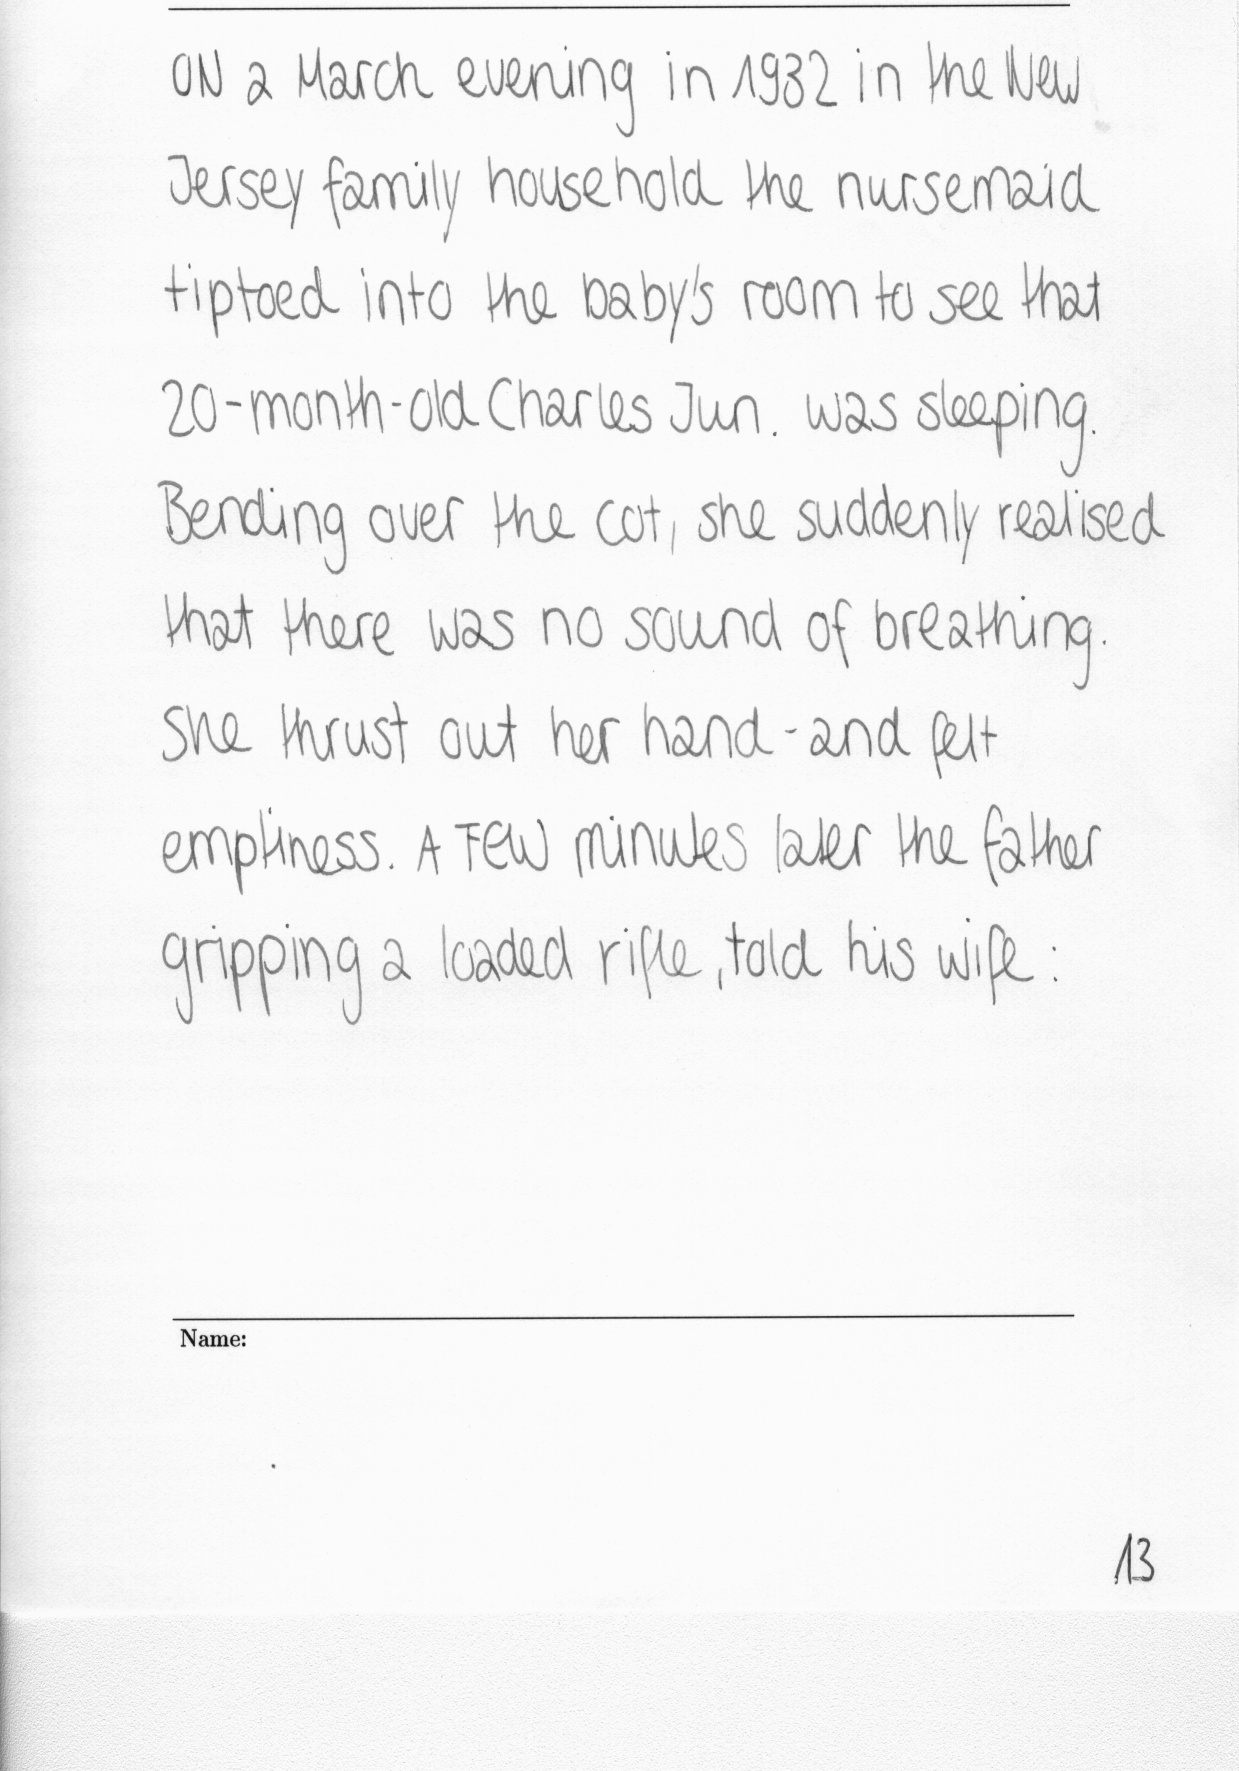 ON a March evening in 1932 in the New
Jersey family household the nursemaid
tiptoed into the baby's room to see that
20-month-old Charles Jun. was sleeping.
Bending over the cot, she suddenly realised
that there was no sound of breathing.
She thrust out her hand - and felt
emptiness. A FEW minutes later the father
gripping a loaded rifle, told his wife:
Name:
13